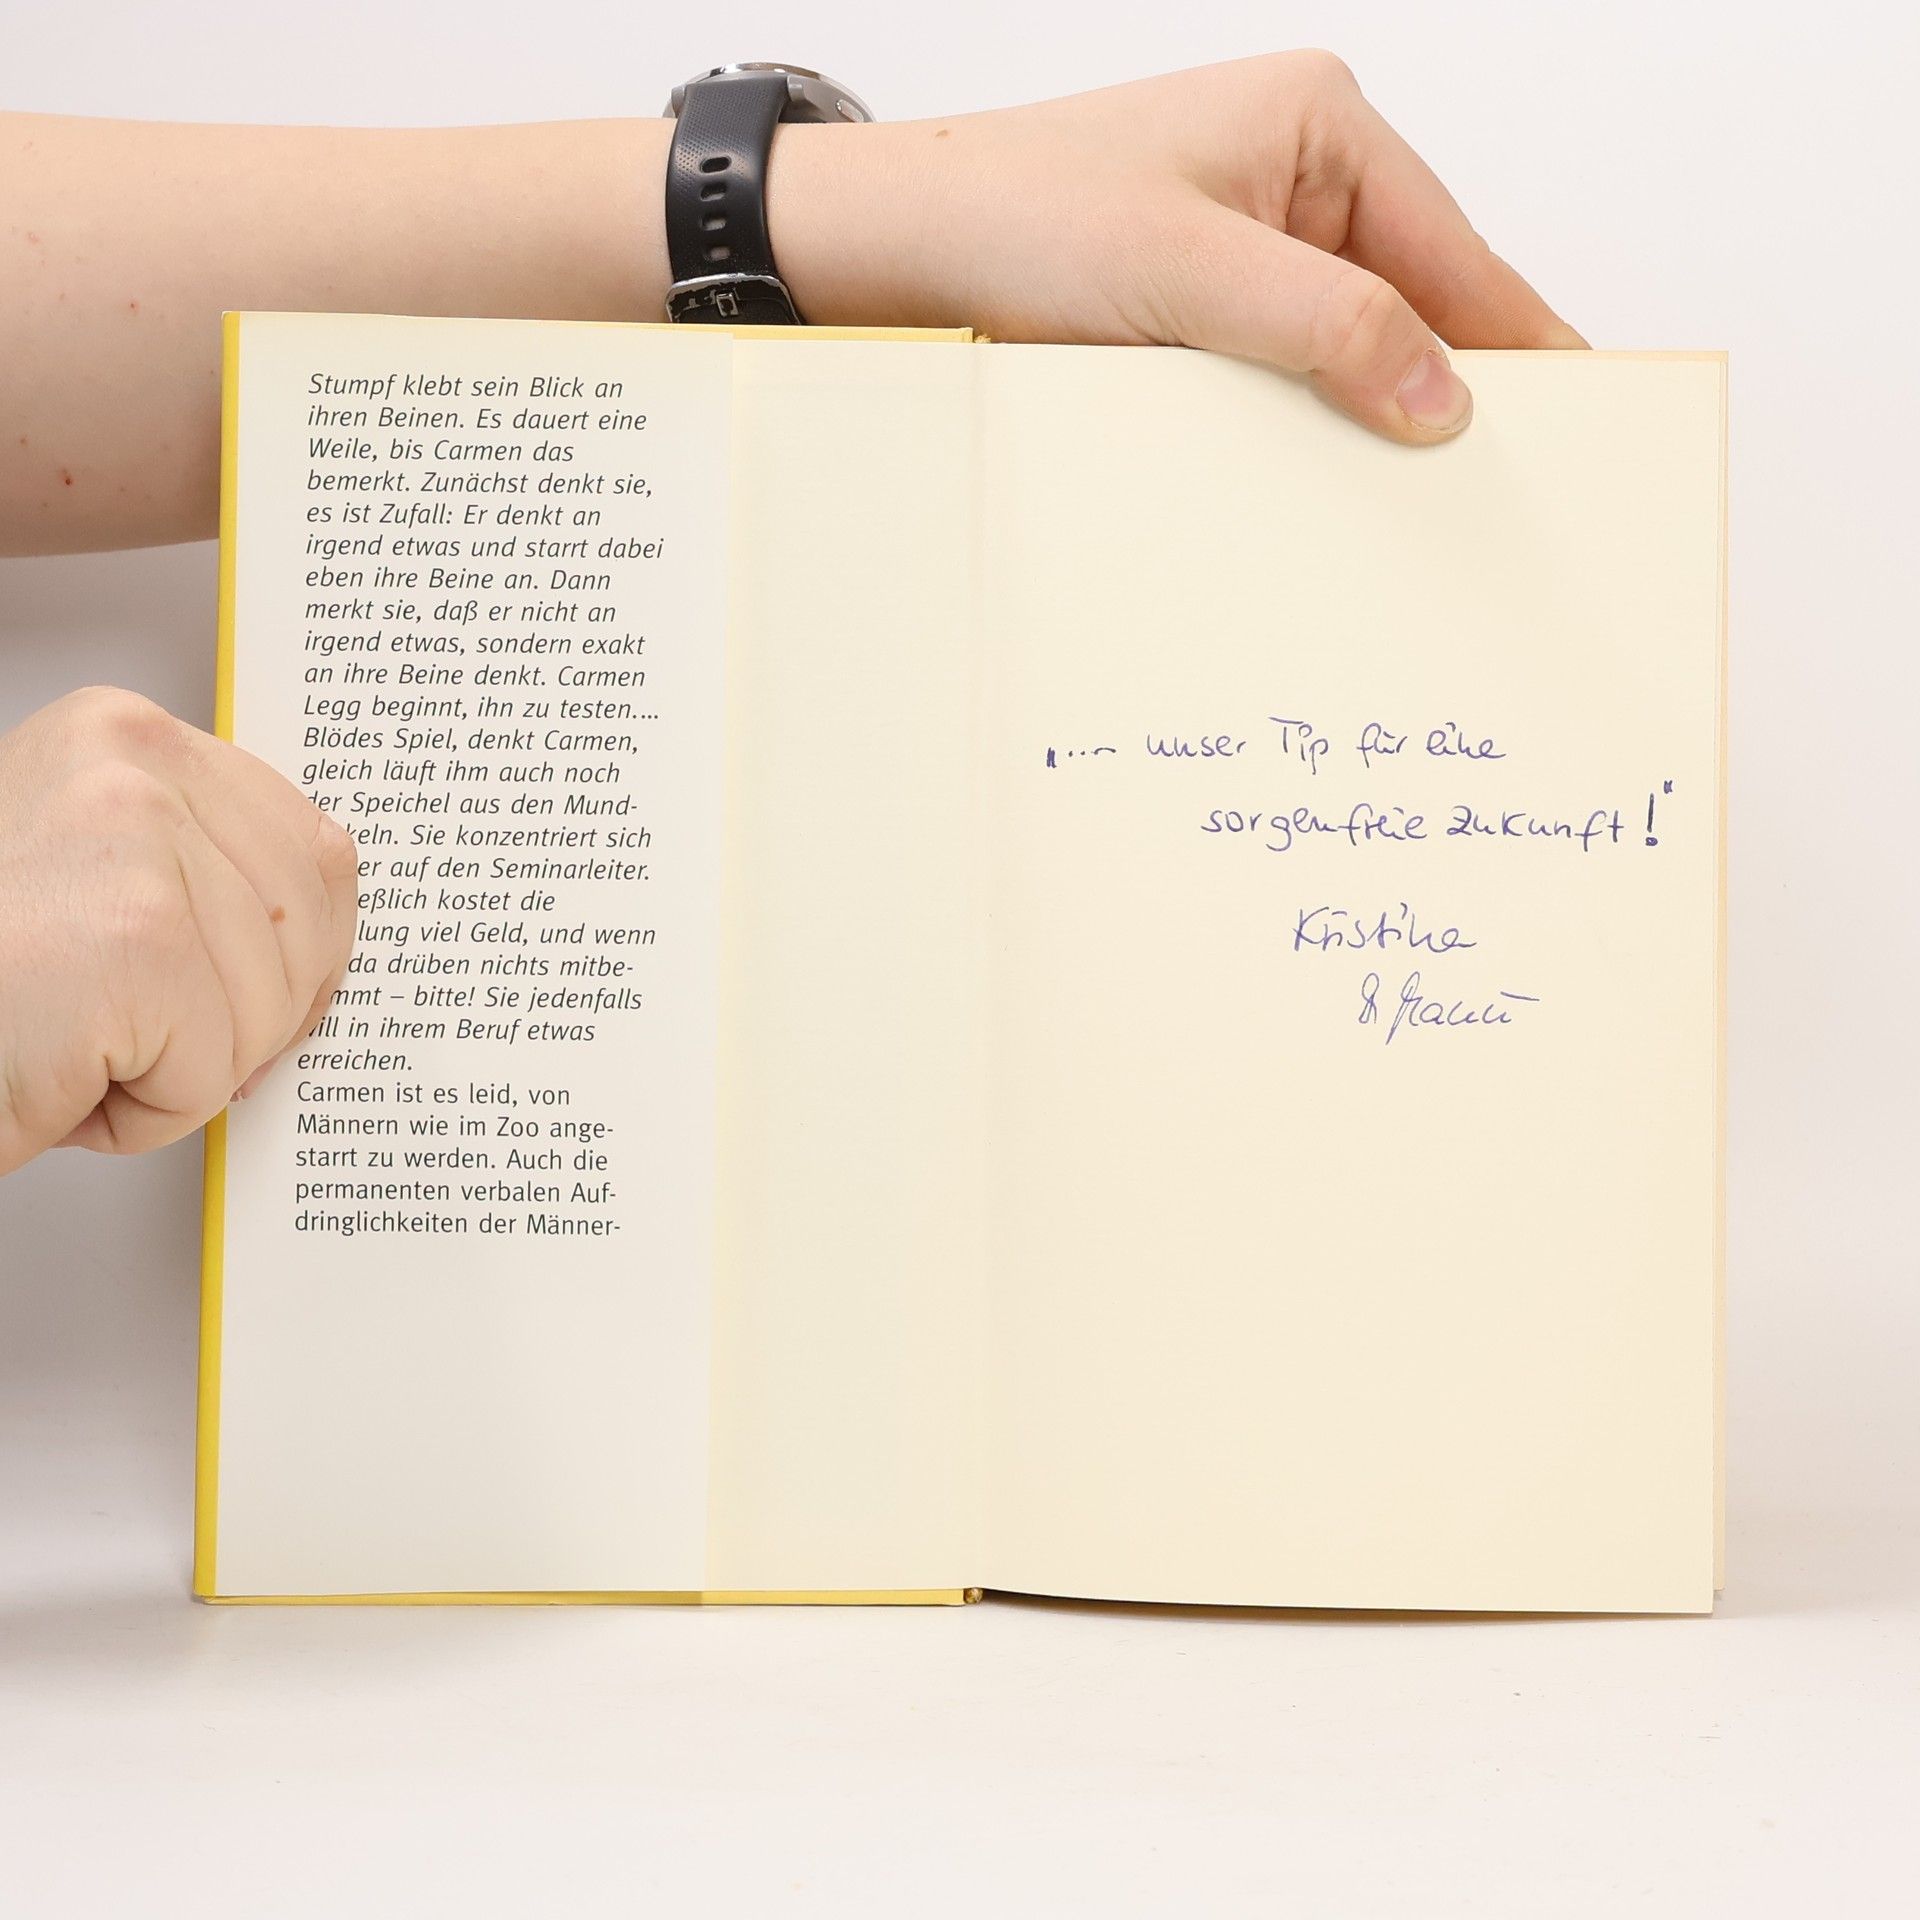 Stumpf klebt sein Blick an
ihren Beinen. Es dauert eine
Weile, bis Carmen das
bemerkt. Zunächst denkt sie,
es ist Zufall: Er denkt an
irgend etwas und starrt dabei
eben ihre Beine an. Dann
merkt sie, daß er nicht an
irgend etwas, sondern exakt
an ihre Beine denkt. Carmen
Legg beginnt, ihn zu testen....
Blödes Spiel, denkt Carmen,
gleich läuft ihm auch noch
der Speichel aus den Mund-
keln. Sie konzentriert sich
er auf den Seminarleiter.
eßlich kostet die
lung viel Geld, und wenn
da drüben nichts mitbe-
mmt – bitte! Sie jedenfalls
will in ihrem Beruf etwas
erreichen.
Carmen ist es leid, von
Männern wie im Zoo ange-
starrt zu werden. Auch die
permanenten verbalen Auf-
dringlichkeiten der Männer-
„... unser Tip für eine
sorgenfreie Zukunft!"
Kristina